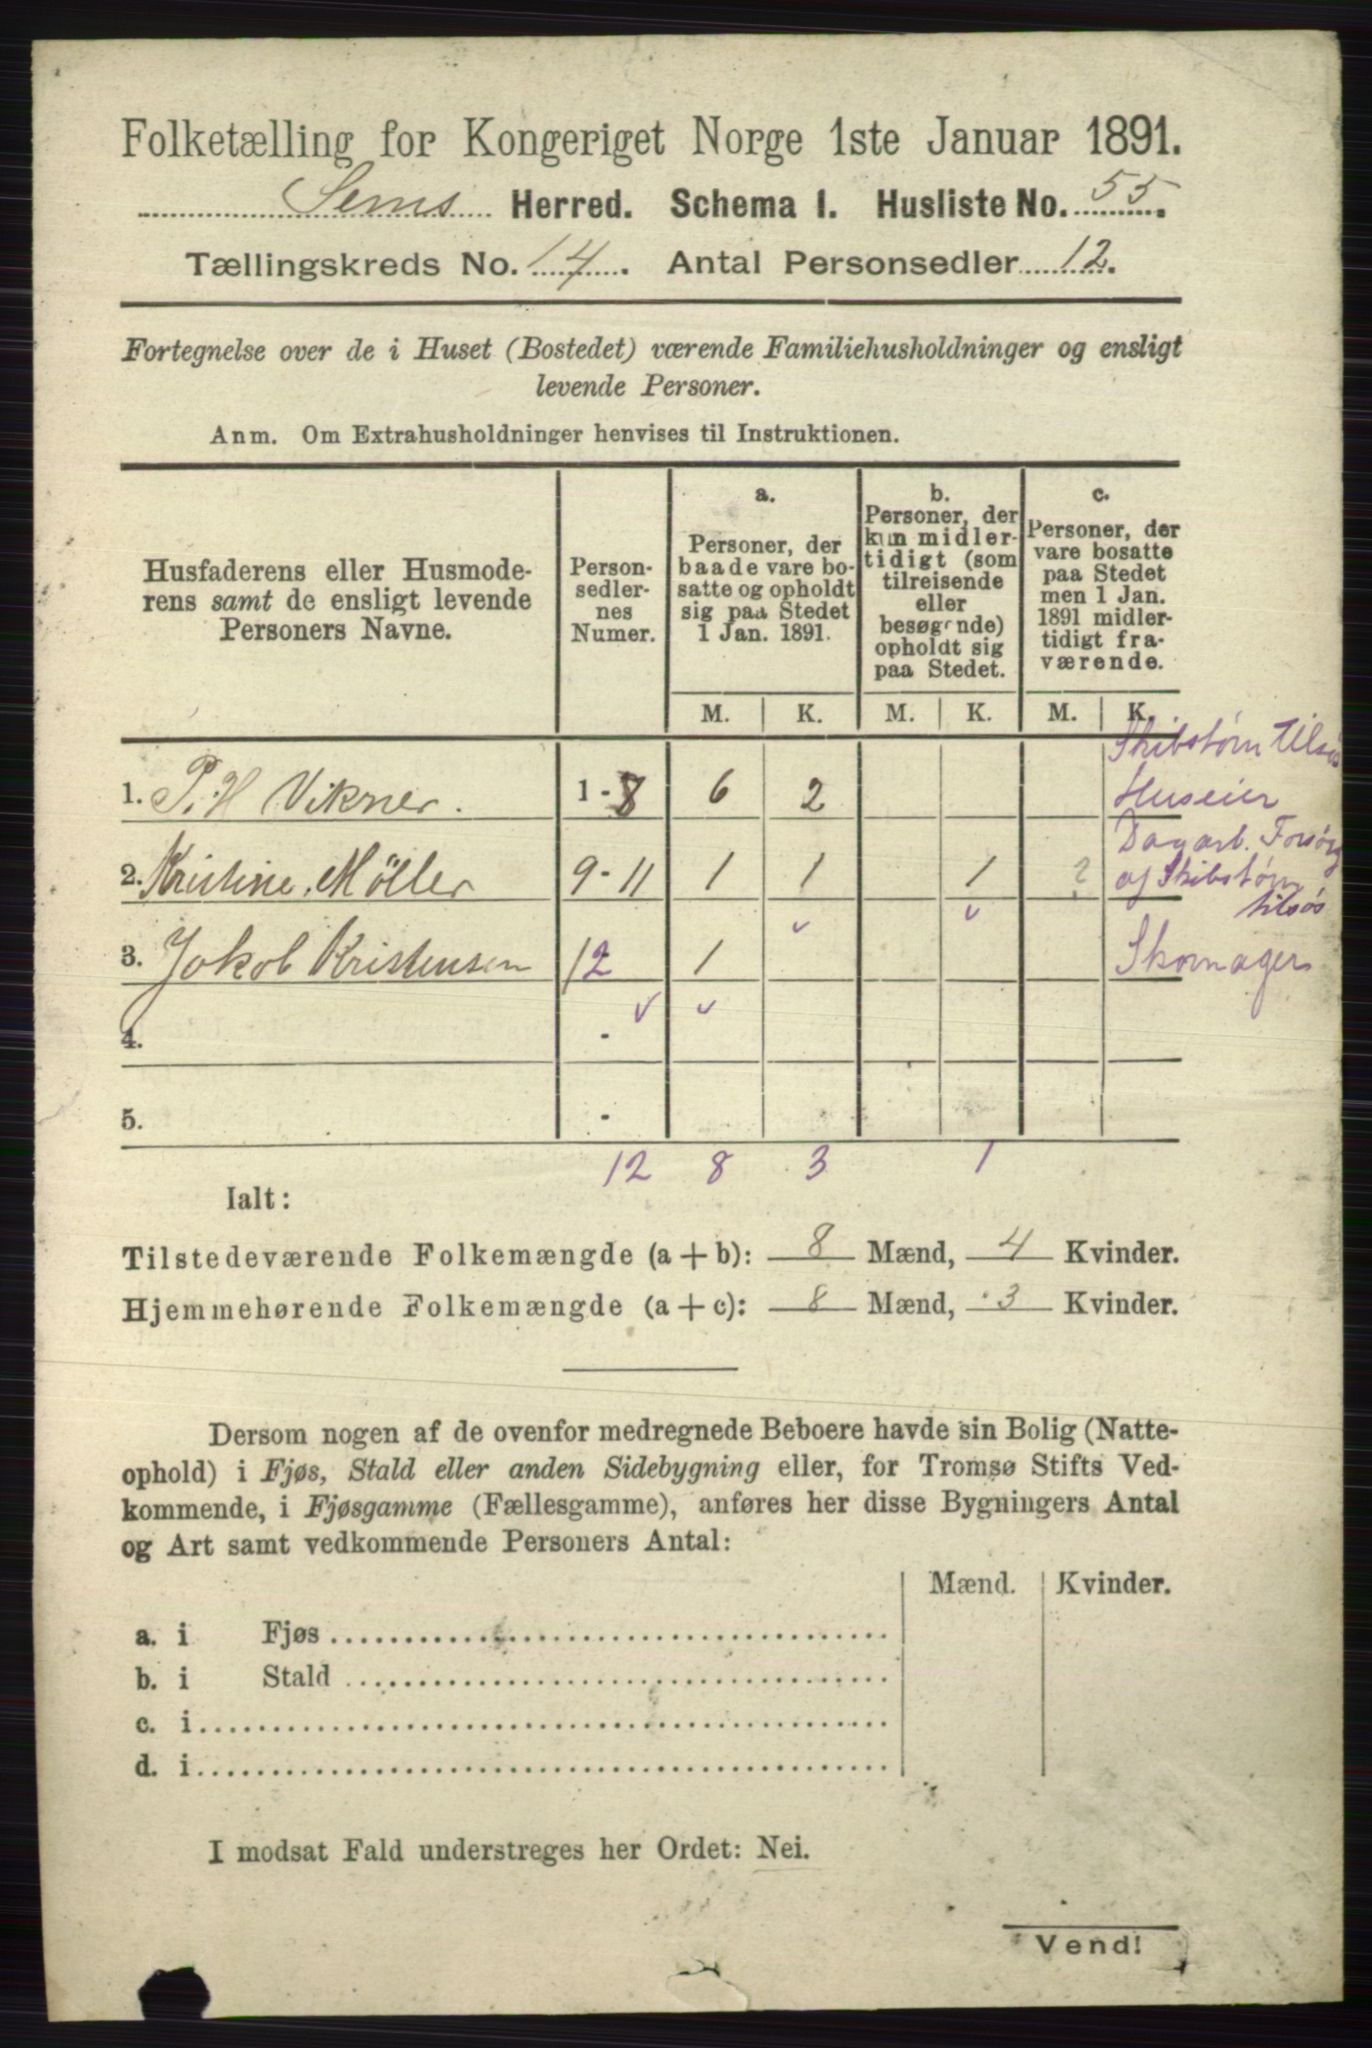 Folketælling for Kongeriget Norge 1ste Januar 1891.
Sems Herred. Schema 1. Husliste No. 55.
Tællingskreds No. 14. Antal Personsedler 12.
Fortegnelse over de i Huset (Bostedet) værende Familiehusholdninger og ensligt
levende Personer.
Anm. Om Extrahusholdninger henvises til Instruktionen.
Husfaderens eller Husmode-
rens samt de ensligt levende
Personers Navne.
Person-
sedler-
nes
Numer.
a.
Personer, der
baade vare bo-
satte og opholdt
sig paa Stedet
1 Jan. 1891.
b.
Personer, der
kun midler-
tidigt (som
tilreisende
eller
besøgende)
opholdt sig
paa Stedet.
c.
Personer, der
vare bosatte
paa Stedet
men 1 Jan.
1891 midler-
tidigt fra-
værende.
M. K. M. K. M. K.
Skibstøm tilsøs
1. P. H Vikner. 1-8 6 2 Huseier
Dagarb. Forsørg
2. Kristine Möller 9-11 1 1 1 2 af Skibstøm
tilsøs
3. Jokob Kristensen 12 1 Skomager
4. -
5. -
12 8 3 1
Ialt:
Tilstedeværende Folkemængde (a + b): 8 Mænd, 4 Kvinder.
Hjemmehørende Folkemængde (a + c): 8 Mænd, 3 Kvinder.
Dersom nogen af de ovenfor medregnede Beboere havde sin Bolig (Natte-
ophold) i Fjøs, Stald eller anden Sidebygning eller, for Tromsø Stifts Ved-
kommende, i Fjøsgamme (Fællesgamme), anføres her disse Bygningers Antal
og Art samt vedkommende Personers Antal:
Mænd. Kvinder.
a. i Fjøs
b. i Stald
c. i
d. i
I modsat Fald understreges her Ordet: Nei.
Vend!